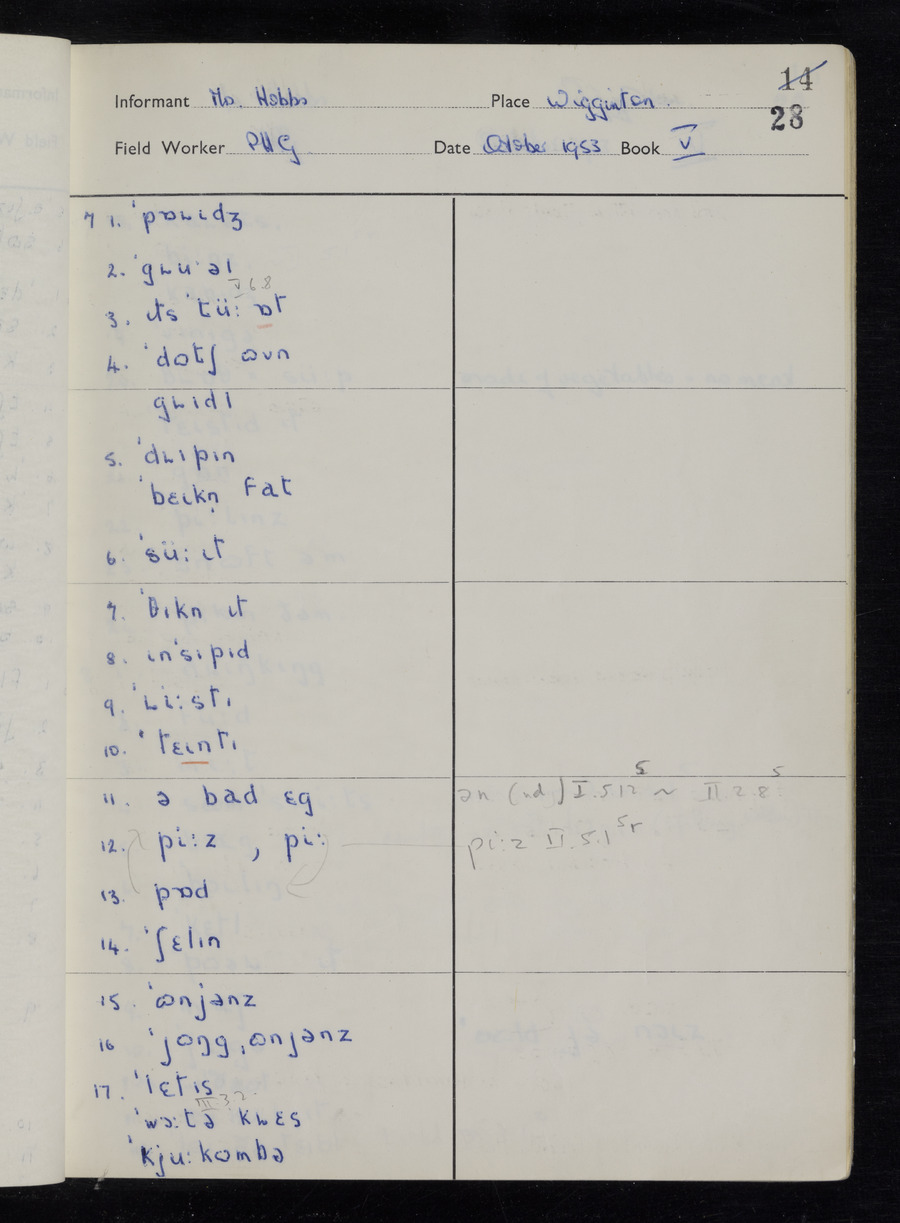 14
28
Informant Mr. Hobbs Place Wigginton.
Field Worker PHG Date October 1953 Book V
7 1. ˈpɒɹɪdʒ
2. ˈgɹuˑəl
V 6 8
3. ɪts ˈtüː ɒt
4. ˈdɷtʃ ɷvn
gɹɪdl
5. ˈdɹɪpɪn
ˈbɛɪkn̩ fat
6. ˈsüː ɪt
7. ˈθɪkn ɪt
8. ɪnˈsɪpɪd
9. ˈɹiːstɪ
10. ˈtɛɪntɪ
11. ə bad ɛg
ən (nd) I.5.12 5 ~ II.2.8 5
12. piːz, piː
piːz II.5.1 5r
13. pɒd
14. ˈʃɛlɪn
15. ˈɷnjənz
16 ˈjɷŋg ˌɷnjənz
17. ˈlɛtɪs
III.3.2.
ˈwɔːtə kɹɛs
ˈkjuːkɷmbə